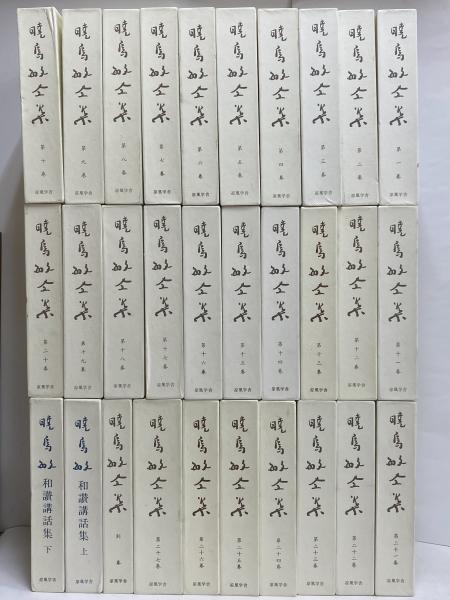 曉烏敏全集
第一巻
涼風学舎
曉烏敏全集
第二巻
涼風学舎
曉烏敏全集
第三巻
涼風学舎
曉烏敏全集
第四巻
涼風学舎
曉烏敏全集
第五巻
涼風学舎
曉烏敏全集
第六巻
涼風学舎
曉烏敏全集
第七巻
涼風学舎
曉烏敏全集
第八巻
涼風学舎
曉烏敏全集
第九巻
涼風学舎
曉烏敏全集
第十巻
涼風学舎
曉烏敏全集
第十一巻
涼風学舎
曉烏敏全集
第十二巻
涼風学舎
曉烏敏全集
第十三巻
涼風学舎
曉烏敏全集
第十四巻
涼風学舎
曉烏敏全集
第十五巻
涼風学舎
曉烏敏全集
第十六巻
涼風学舎
曉烏敏全集
第十七巻
涼風学舎
曉烏敏全集
第十八巻
涼風学舎
曉烏敏全集
第十九巻
涼風学舎
曉烏敏全集
第二十巻
涼風学舎
曉烏敏全集
第二十一巻
涼風学舎
曉烏敏全集
第二十二巻
涼風学舎
曉烏敏全集
第二十三巻
涼風学舎
曉烏敏全集
第二十四巻
涼風学舎
曉烏敏全集
第二十五巻
涼風学舎
曉烏敏全集
第二十六巻
涼風学舎
曉烏敏全集
第二十七巻
涼風学舎
曉烏敏全集
別巻
涼風学舎
曉烏敏
和讃講話集 上
涼風学舎
曉烏敏
和讃講話集 下
涼風学舎